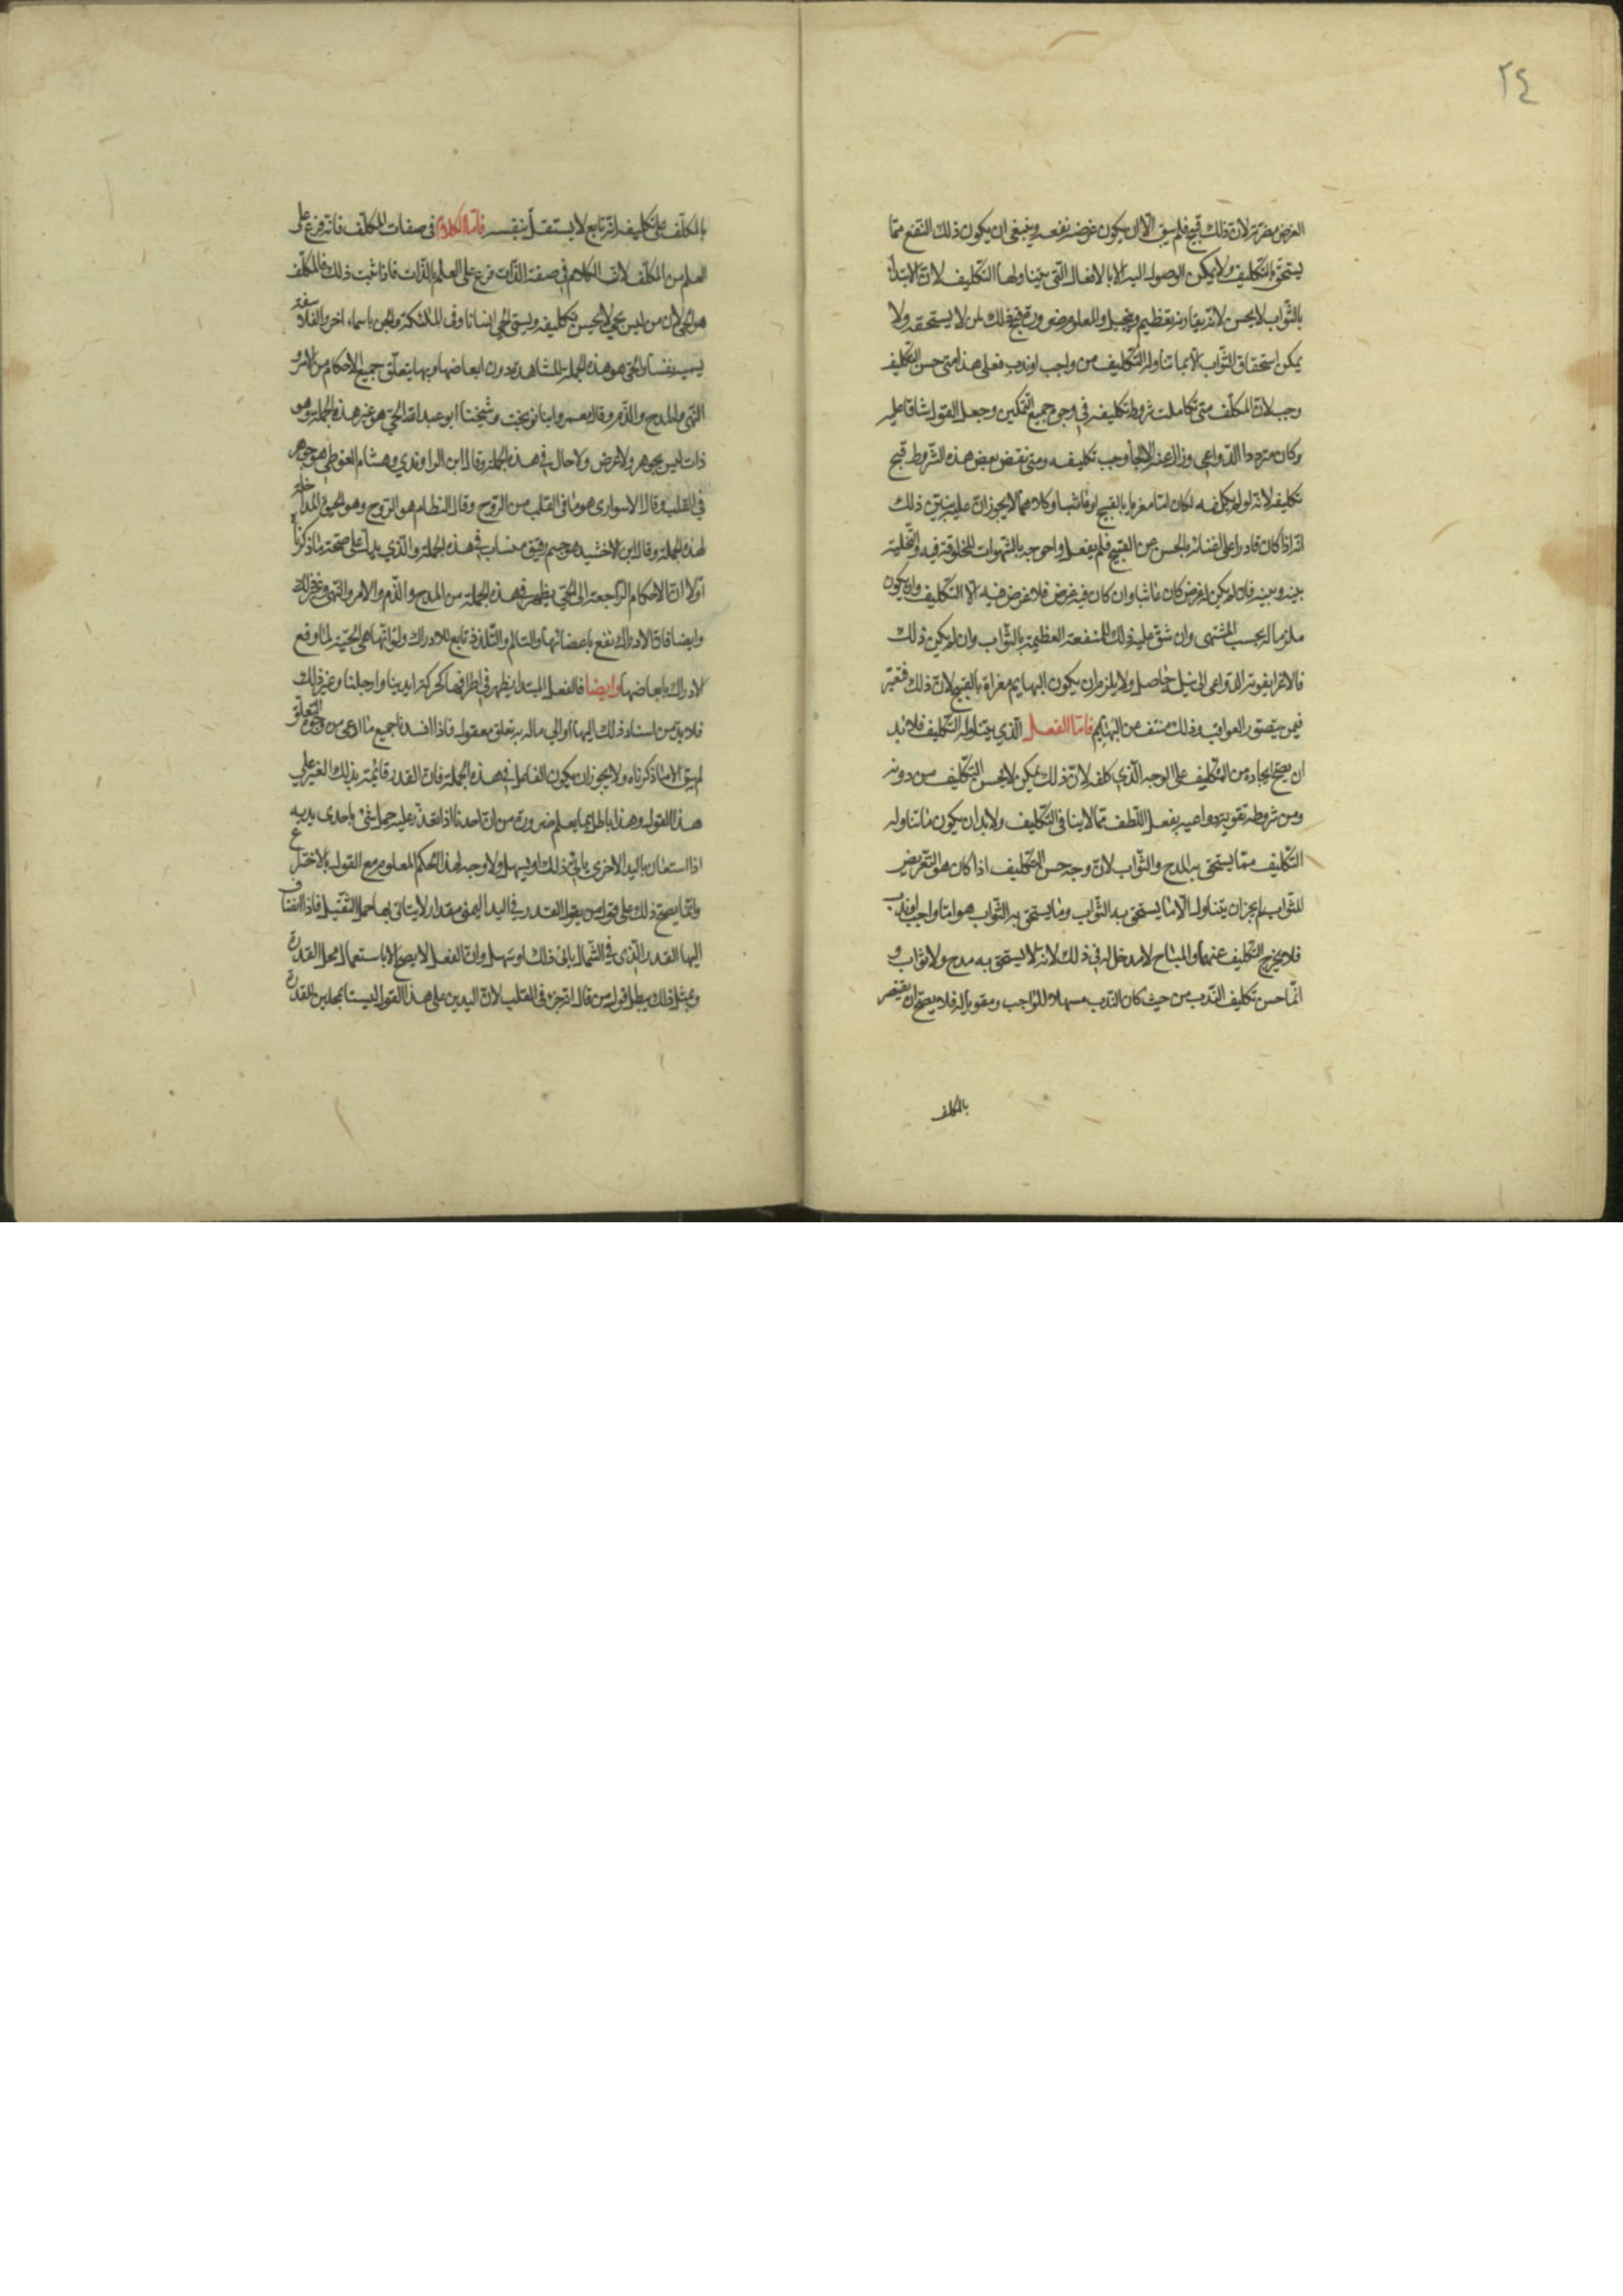 ٢٤
الغرض مضرته لان ذلك قبيح فلم يبق الا ان يكون غرضه نفعه وينبغي ان يكون ذلك النفع ممّا
يستحق بالتكليف ولا يمكن الوصول اليه الا بالافعال التي يتناولها التكليف لانّ الابتدأ
بالثّواب لا يحسن لانّه يقارنه تعظيم وتبجيل والمعلوم ضرورة قبح ذلك لمن لا يستحقه ولا
يمكن استحقاق الثّواب الا بما تناوله التّكليف من واجب او ندب فعلى هذا متى حسن التّكليف
وجب لانّ المكلّف متى تكاملت شروط تكليفه في وجوه جميع التّمكين وجعل الفعل شاقا عليه
وكان متردد الدّواعي وزال عنه الالجأ وجب تكليفه ومتى نقض بعض هذه الشّروط قبح
تكليفه لانّه لو لم يكلفه لكان امّا مغريا بالقبيح او عابثا وكلاهما لا يجوزان عليه يبيّن ذلك
انّه اذا كان قادرا على اغنائه بالحسن عن القبيح فلم يفعل واحوجه بالشّهوات المخلوقة فيه والتّخلية
بينه وبينه فان لم يكن لغرض كان عابثا وان كان فيه غرض فلا غرض فيه الا التّكليف وان يكون
ملزما له بحسب المشتهى وان شقّ عليه ذلك للمنفعة العظيمة بالثّواب وان لم يكن ذلك
فالاغرا بقوّة الدّواعي الى نيله حاصل ولا يلزم ان يكون البهايم مغراة بالقبيح لانّ ذلك
فيمن يتصوّر العواقب وذلك منتف عن البهايم فامّا الفعل الّذي يتناوله التّكليف فلا بدّ
ان يصحّ ايجاده من المكلّف على الوجه الّذي كلفه لانّ ذلك تمكين لا يحسن التّكليف من دونه
ومن شروطه تقوية دواعيه بفعل اللّطف ممّا لا ينافي التّكليف ولا بد ان يكون ما تناوله
التّكليف ممّا يستحق به المدح والثّواب لانّ وجه حسن التّكليف اذا كان هو التّعريض
للثّواب لم يجز ان يتناول الّا ما يستحق به الثّواب وما يستحق به الثّواب هو امّا واجب او ندب
فلا يخرج التّكليف عنهما والمباح لا مدخل له في ذلك لانّه لا يستحق به مدح ولا ثواب و
انّما حسن تكليف النّدب من حيث كان النّدب مسهلا للواجب ومقويا له فلا يصحّ ان يقتصر
بالمكلف
بالمكلّف على تكليفه لانّه تابع لا يستقلّ بنفسه فامّا الكلام في صفات المكلّف فانّه فرع على
العلم من المكلّف لانّ الكلام في صفة الذّات فرع على العلم بالذّات فاذا ثبت ذلك فالمكلّف
هو الحي لان من ليس بحي لا يحسن تكليفه ويسمّى الحي انسانا وفي الملئكة والجن باسماء اخر والفلاسفة
يسميه نفسا والحي هو هذه الجملة المشاهدة دون ابعاضها وبها يتعلّق جميع الاحكام من الامر و
النّهي والمدح والذّم وقال معمر وابنا نوبخت وشيخنا ابو عبد الله الحي هو غير هذه الجملة وهو
ذات ليس بجوهر ولا عرض ولا حال في هذه الجملة وقال ابن الراوندي وهشام الفوطي هو جوهر
في القلب وقال الاسواري هو ما في القلب من الرّوح وقال النظام هو الرّوح وهو الحيوة المداخلة
لهذه الجملة وقال ابن الاخشيد هو جسم رقيق منساب في هذه الجملة والّذي يدلّ على صحّة ما ذكرنا
اوّلا انّ الاحكام الرّاجعة الى الحيّ يظهر في هذه الجملة من المدح والذّم والامر والنّهي وغير ذلك
وايضا فانّ الادراك يقع باعضائها والتّالم والتّلذذ تابع للادراك ولو انّها هي الحيّة لما وقع
الادراك بابعاضها وايضا فالفعل المبتدا يظهر في اطرافها كحركة ايدينا وارجلنا وغير ذلك
فلا بدّ من اسناد ذلك اليها او الي ما له به تعلق معقول فاذا افسدنا جميع ما ادعى من وجوه التعلّق
لم يبق الا ما ذكرناه ولا يجوز ان يكون الفاعل في هذه الجملة فانّ القدر قائمة بذلك الغير على
هذا القول وهذا باطل بما يعلم ضرورة من انّ احدنا اذا تعذّر عليه حمل شئ باحدى يديه
اذا استعان باليد الاخرى ياتي ذلك او يسهل ولا وجه لهذا الحكم المعلوم مع القول بالاختراع
وانّما يصحّ ذلك على قول من يقول القدر في اليد اليمنى مقدار لا يتاتى بها حمل الثّقيل فاذا انضاف
اليها القدر الّذي في الشّمال ياتى ذلك او تسهل وانّ الفعل لا يصح الا باستعمال محل القدرة
وبمثل ذلك يبطل قول من قال انّه جزء في القلب لانّ اليدين على هذا القول ليستا بمحلين للقدرة